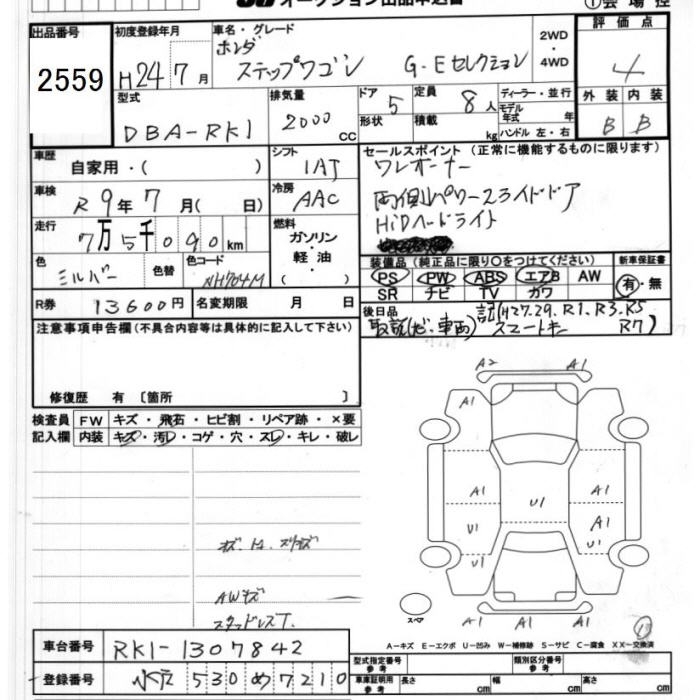 オークション出品申込書
①会場控
出品番号 2559
初度登録年月 H24年7月
車名・グレード ホンダ ステップワゴン G・Eセレクション
2WD・4WD
評価点 4
型式 DBA-RK1
排気量 2000cc
ドア 5 形状
定員 8人 積載 kg
ディーラー・並行
モデル年式 年
ハンドル 左・右
外装 内装
B B
車歴 自家用・( )
シフト IAT
セールスポイント (正常に機能するものに限ります)
ワンオーナー
両側パワースライドドア
HiDヘッドライト
車検 R9年7月( 日)
冷房 AAC
走行 7万5千090km
燃料 ガソリン・軽油・( )
色 シルバー 色替 色コード NH704M
装備品 (純正品に限り○をつけてください) 新車保証書
PS PW ABS エアB AW
SR ナビ TV カワ
有・無
R券 13600円 名変期限 月 日
後日品 取説(ナビ・車両) 記(H27.29.R1.R3.R5
スマートキー R7)
注意事項申告欄 (不具合内容等は具体的に記入して下さい)
修復歴 有 〔箇所 〕
検査員記入欄
FW キズ・飛石・ヒビ割・リペア跡・×要
内装 キズ・汚レ・コゲ・穴・スレ・キレ・破レ
A2 A1
A1
A1 A1
U1 A1
U1 U1
A1 A1
AWキズ
スタッドレスT.
スペア
A−キズ E−エクボ U−凹み W−補修跡 S−サビ C−腐食 XX−交換済
車台番号 RK1-1307842
型式指定番号 参考 類別区分番号 参考
登録番号 530め7210
車庫証明用 参考 長さ cm 幅 cm 高さ cm